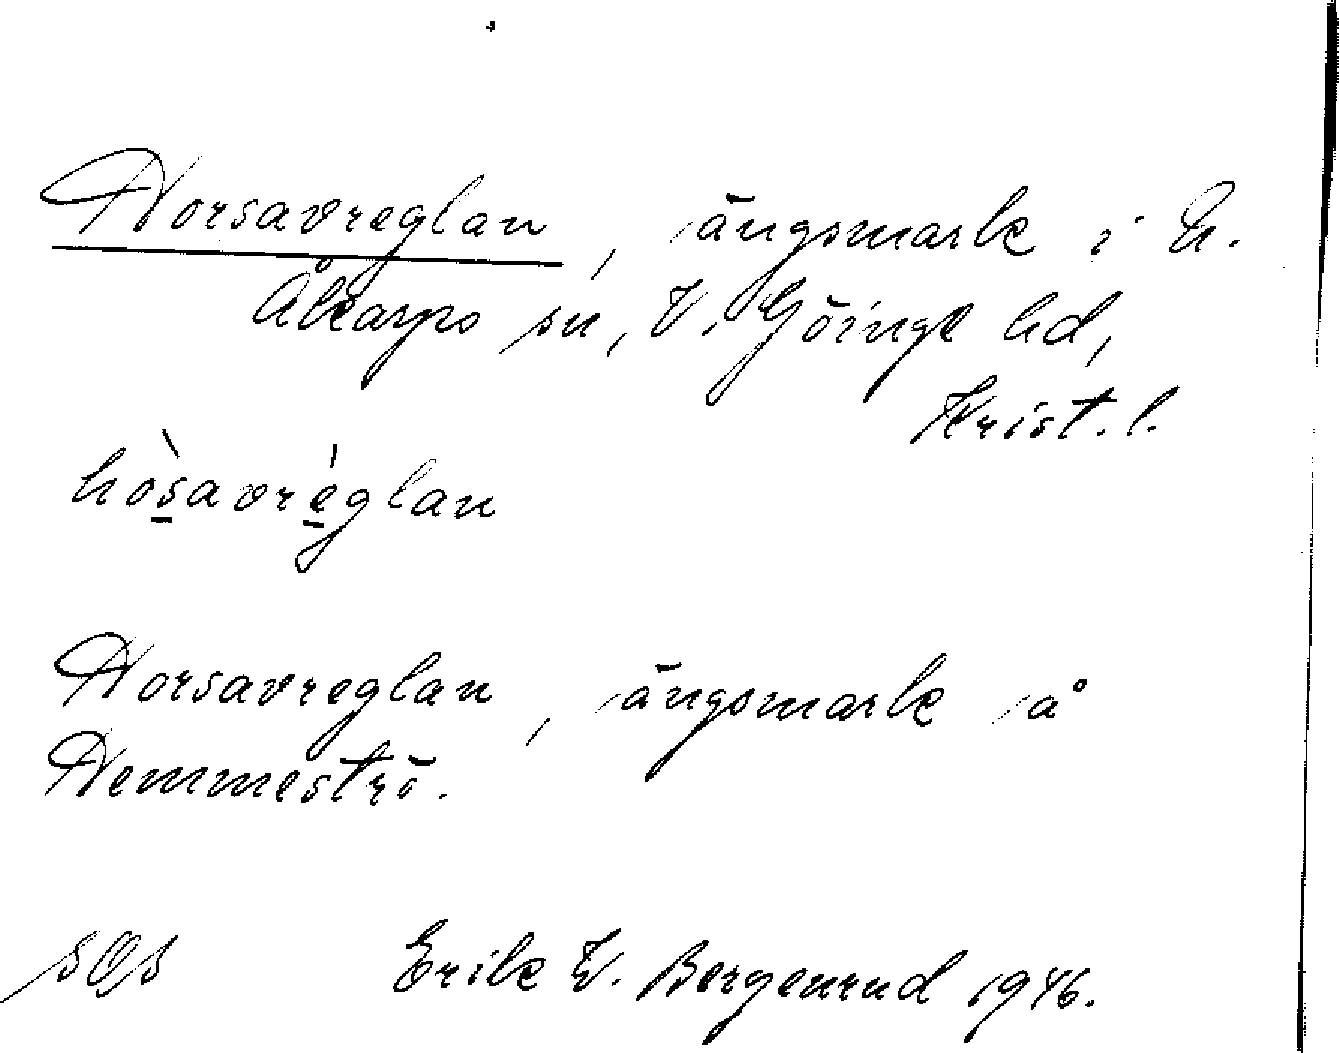 Horsavreglan, ängsmark i N.
Åkarps sn, V. Göinge hd,
Krist. l.
hòsavréglan
Horsavreglan, ängsmark å
Hemmeströ.
Erik W. Bergenrud 1946.